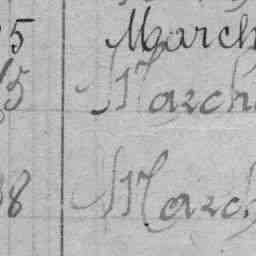 5 March
15 March
38 March